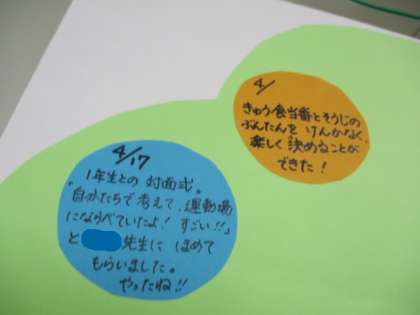 4/
きゅう食当番とそうじの
ぶんたんを けんかなく、
楽しく決めることが
できた!
4/17
1年生との 対面式。
「自分たちで考えて、運動場
にならべていたよ! すごい!!」
と 先生に ほめて
もらいました。
やったね!!